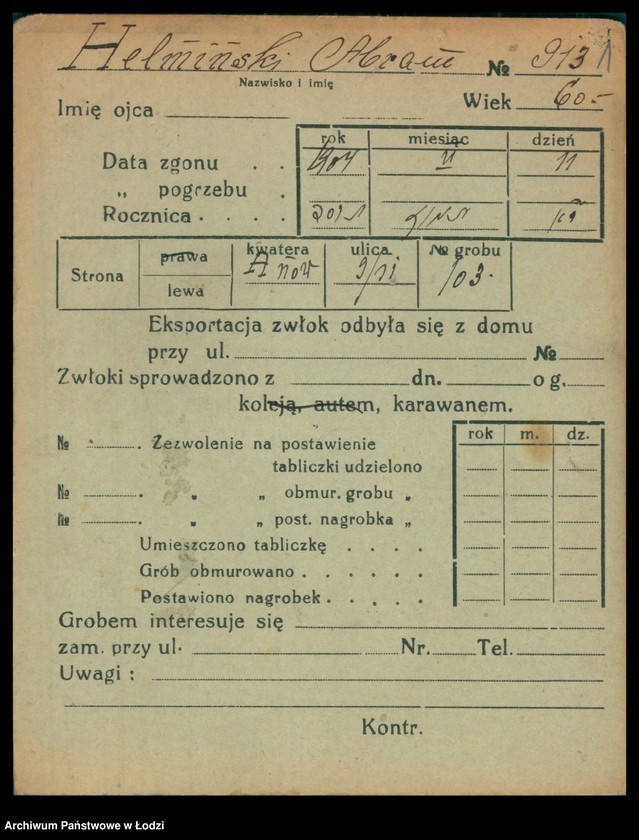 Helmiński Abram № 913
Nazwisko i imię
Imię ojca Wiek 60.-
rok miesiąc dzień
Data zgonu . . 904 II 11
„ pogrzebu .
Rocznica . . . .
Strona prawa kwatera ulica № grobu
lewa A 103.
Eksportacja zwłok odbyła się z domu
przy ul. №
Zwłoki sprowadzono z dn. o g.
koleją, autem, karawanem.
rok m. dz.
№ . Zezwolenie na postawienie
tabliczki udzielono
№ . „ „ obmur. grobu „
№ . „ „ post. nagrobka „
Umieszczono tabliczkę . . . .
Grób obmurowano . . . . . .
Postawiono nagrobek . . . . .
Grobem interesuje się
zam. przy ul. Nr. Tel.
Uwagi :
Kontr.
Archiwum Państwowe w Łodzi